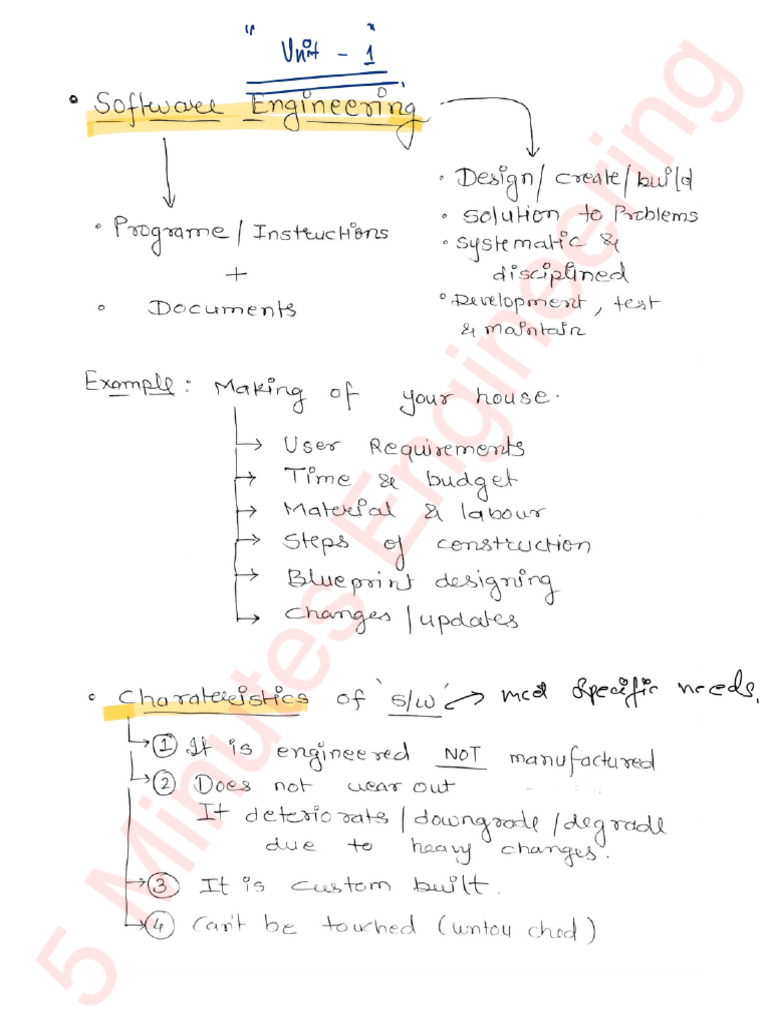 " Unit - 1 "
• Software Engineering
• Programe / Instructions
+
• Documents
• Design / create / build
• Solution to Problems
• Systematic &
disciplined
• Development, test
& maintain
Example : Making of your house.
User Requirements
Time & budget
Material & labour
Steps of construction
Blueprint designing
Changes / updates
• Charateristics of 's/w' → meet specific needs.
① It is engineered NOT manufactured
② Does not wear out
It deteriorats / downgrade / degrade
due to heavy changes.
③ It is custom built.
④ Can't be touched (untouched)
5 Minutes Engineering